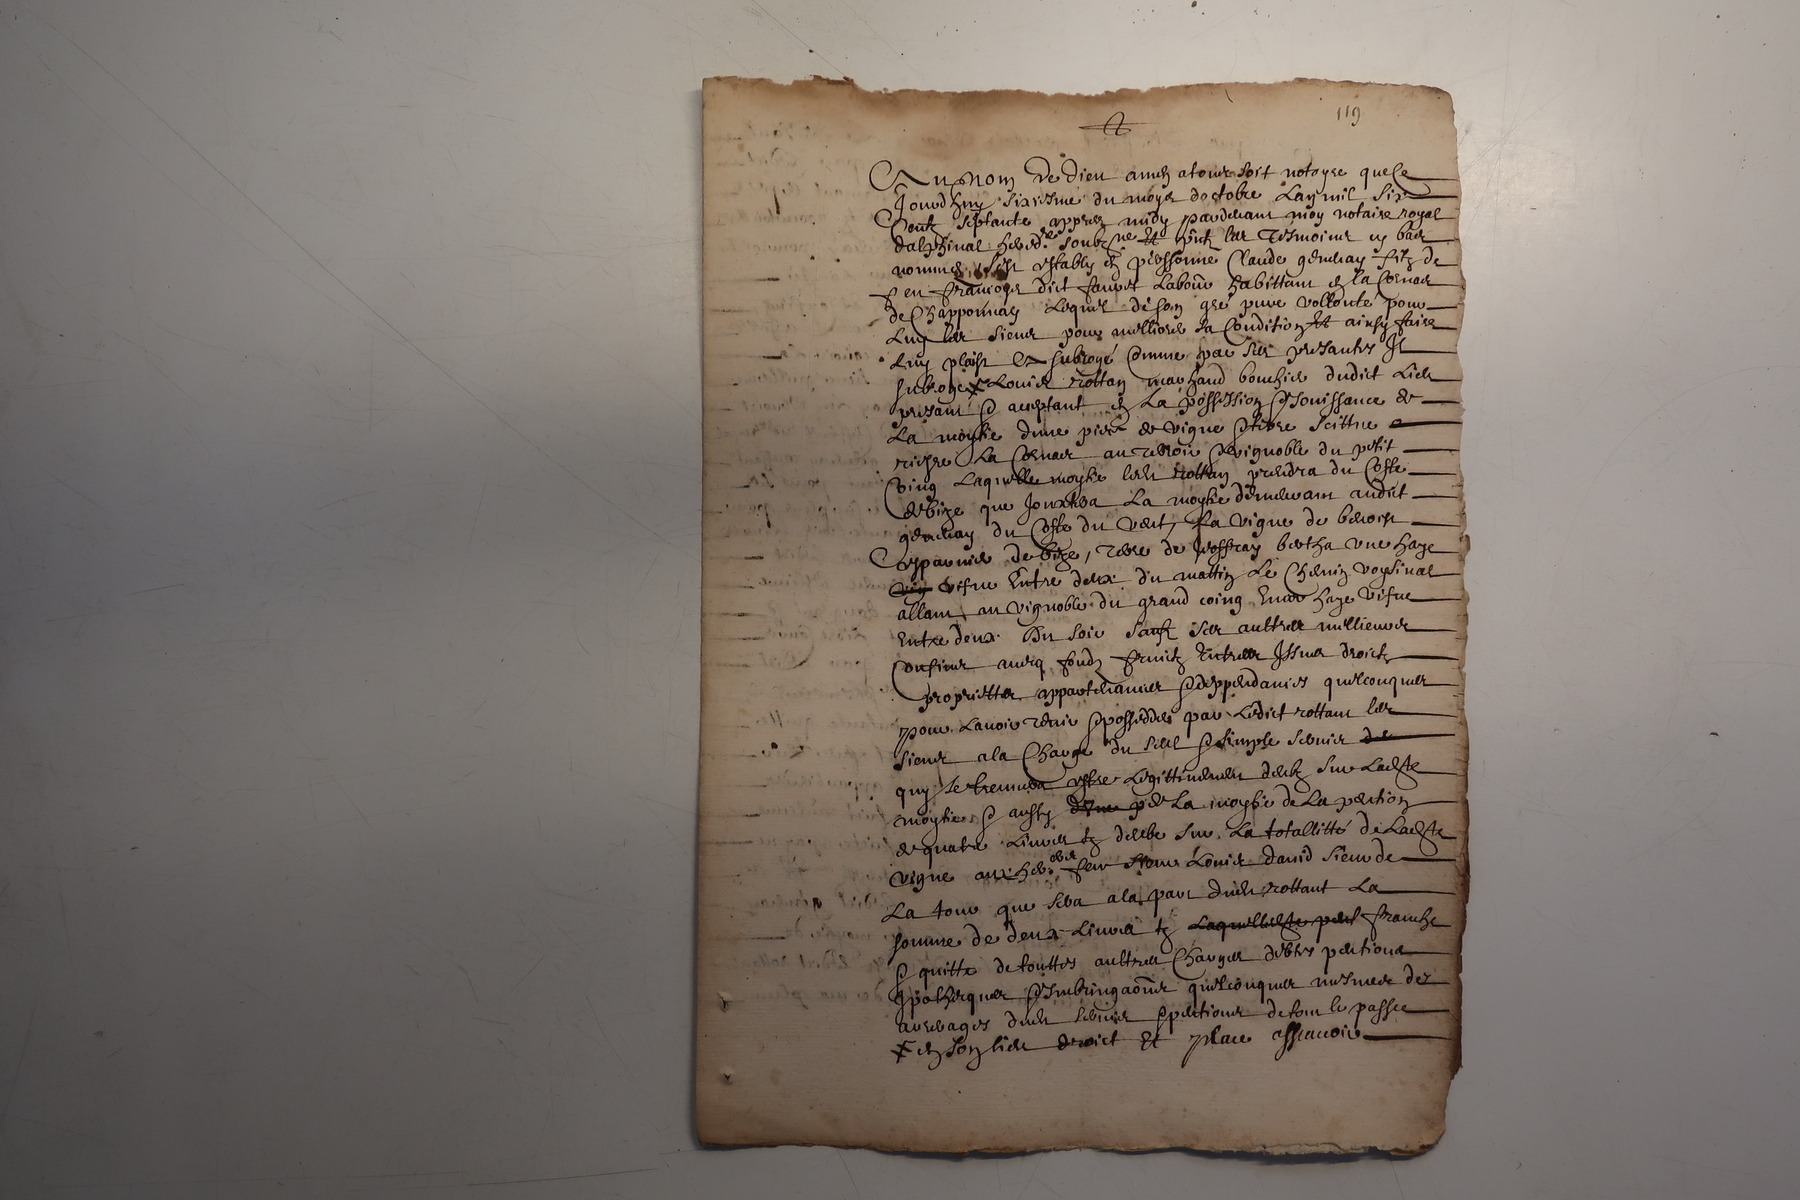 119
Au nom de dieu amen a tous soit notoyre que ce
Jourdhuy sixiesme du moys doctobre Lan mil six
Centz septante appres midy pardevant moy notaire royal
dalphinal hered.re soubz.ne et pntz les tesmoins en bas
nommes sest estably en personne Claude gendray filz de
feu francoys dict labour habittant en la Cornas
de Chapponnay Lequel de son gre pure vollonte pour
Luy les siens pour milliorer sa Condition et ainsy faire
Luy plaist a subroge comme par ses presantes Il
subroge Louis rottan marchand bouchier dudict Lieu
presant et aceptant en La possession et Jouissance de
La moytie dune piece de vigne et terre scittue
riesre La Cornas au terroir et vignoble du petit
Coing Laquelle moytie led rottan prendra du Coste
de bize que Jouxtera La moytie demeurant audict
gendray du Coste du vent, La vigne de benoist
de bize, terre de Joffray bertha une haye
vifue Entre deux du mattin Le Chemin voysinal
allant au vignoble du grand coing une haye vifue
Entre deux du soir sauf ses aultres millieurs
Confins avecq fondz fruictz Entrees Issues droictz
proprietes appartenances et deppendances quelconques
pour Lavoir tenir et posseder par Ledict rottant les
siens a la Charge du seel et simple servis
quy se treuvera estre Legittimement deubz sur Ladte
moytie et aussy de La moytie de La pention
de quatre Livres tz deube sur La totallitte de Ladte
vigne aux her.s feu Louis david sieur de
La tour que sera a la part dud rottant La
somme de deux Livres tz franche
et quitte de touttes aultres Charges debtes pentions
ypotheques et quelconques mesmes des
arrerages dud servis et pentions de tout le passe
en son lieu droict et place assavoir